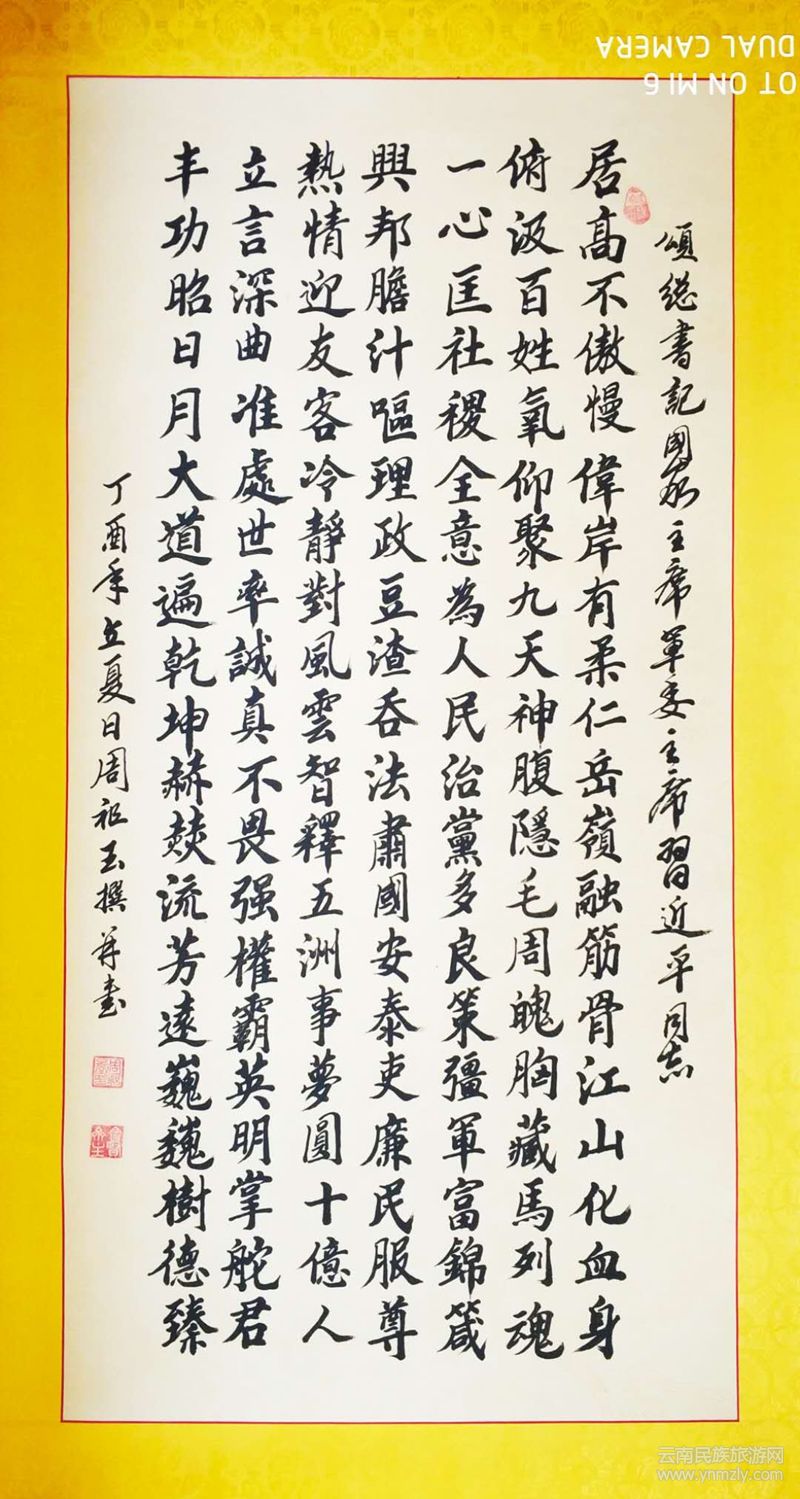 頌總書記國家主席軍委主席習近平同志
居高不傲慢偉岸有柔仁岳嶺融筋骨江山化血身
俯汲百姓氧仰聚九天神腹隱毛周魄胸藏馬列魂
一心匡社稷全意為人民治黨多良策彊軍富錦箴
興邦膽汁嘔理政豆渣吞法肅國安泰吏廉民服尊
熱情迎友客冷靜對風雲智釋五洲事夢圓十億人
立言深曲准處世率誠真不畏强權霸英明掌舵君
丰功昭日月大道遍乾坤赫赫流芳遠巍巍樹德臻
丁酉年立夏日周祖玉撰并書
OT ON MI 6
DUAL CAMERA
云南民族旅游网
www.ynmzly.com